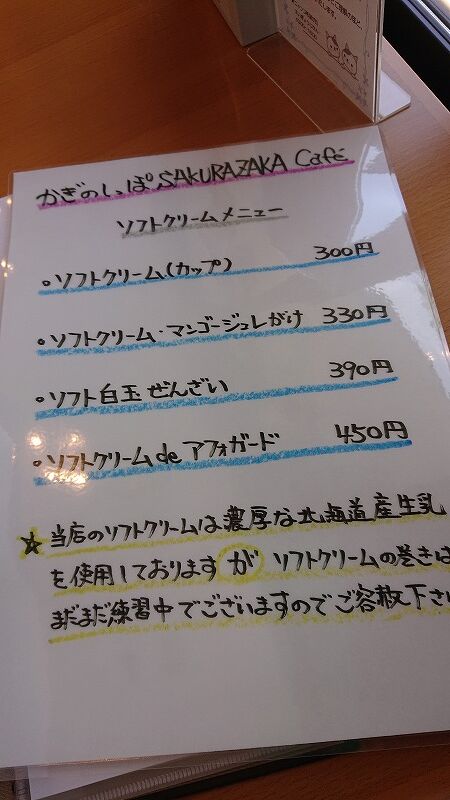 かぎのしっぽ SAKURAZAKA Café
ソフトクリームメニュー
・ソフトクリーム(カップ) 300円
・ソフトクリーム・マンゴージュレがけ 330円
・ソフト白玉ぜんざい 390円
・ソフトクリーム de アフォガード 450円
☆当店のソフトクリームは濃厚な北海道産生乳
を使用しておりますが ソフトクリームの巻きは
まだまだ練習中でございますのでご容赦下さい